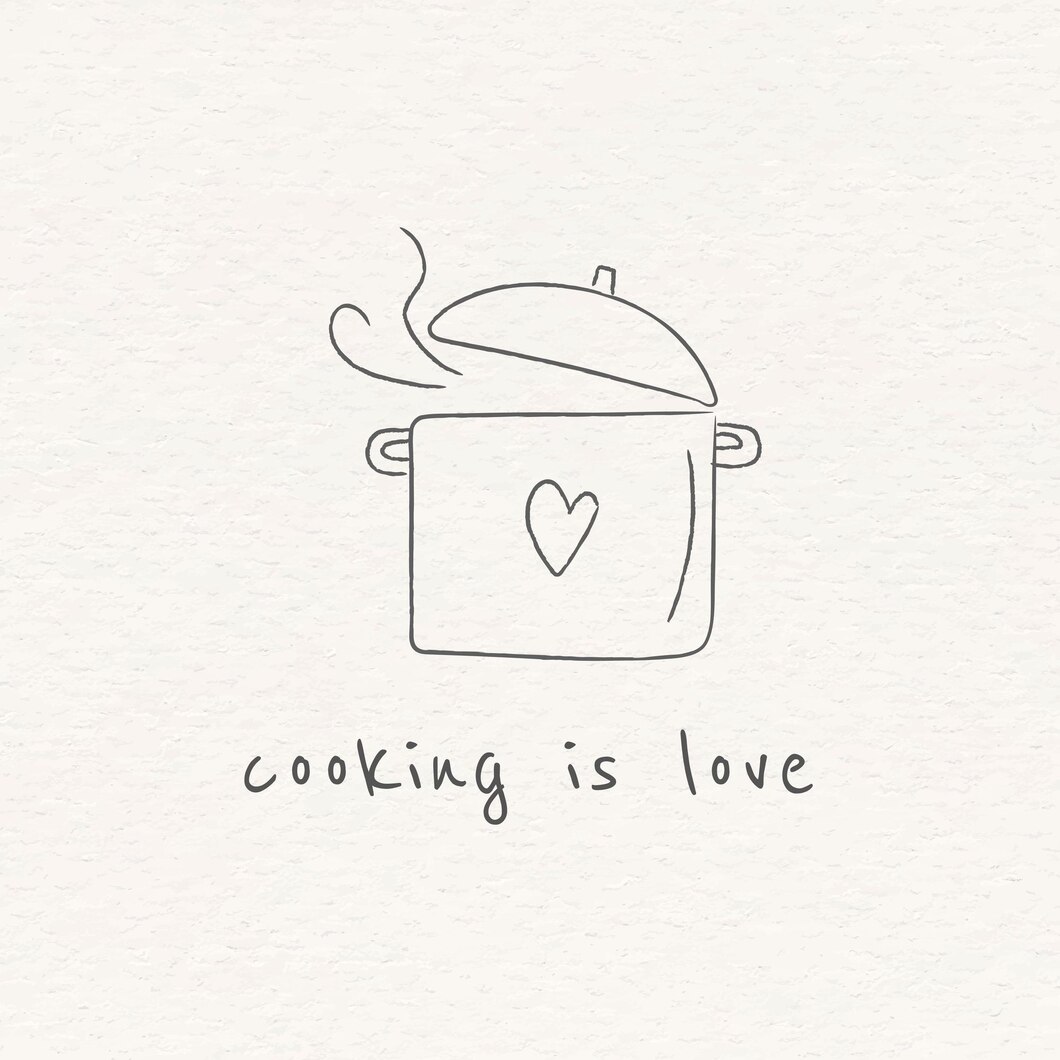 cooking is love